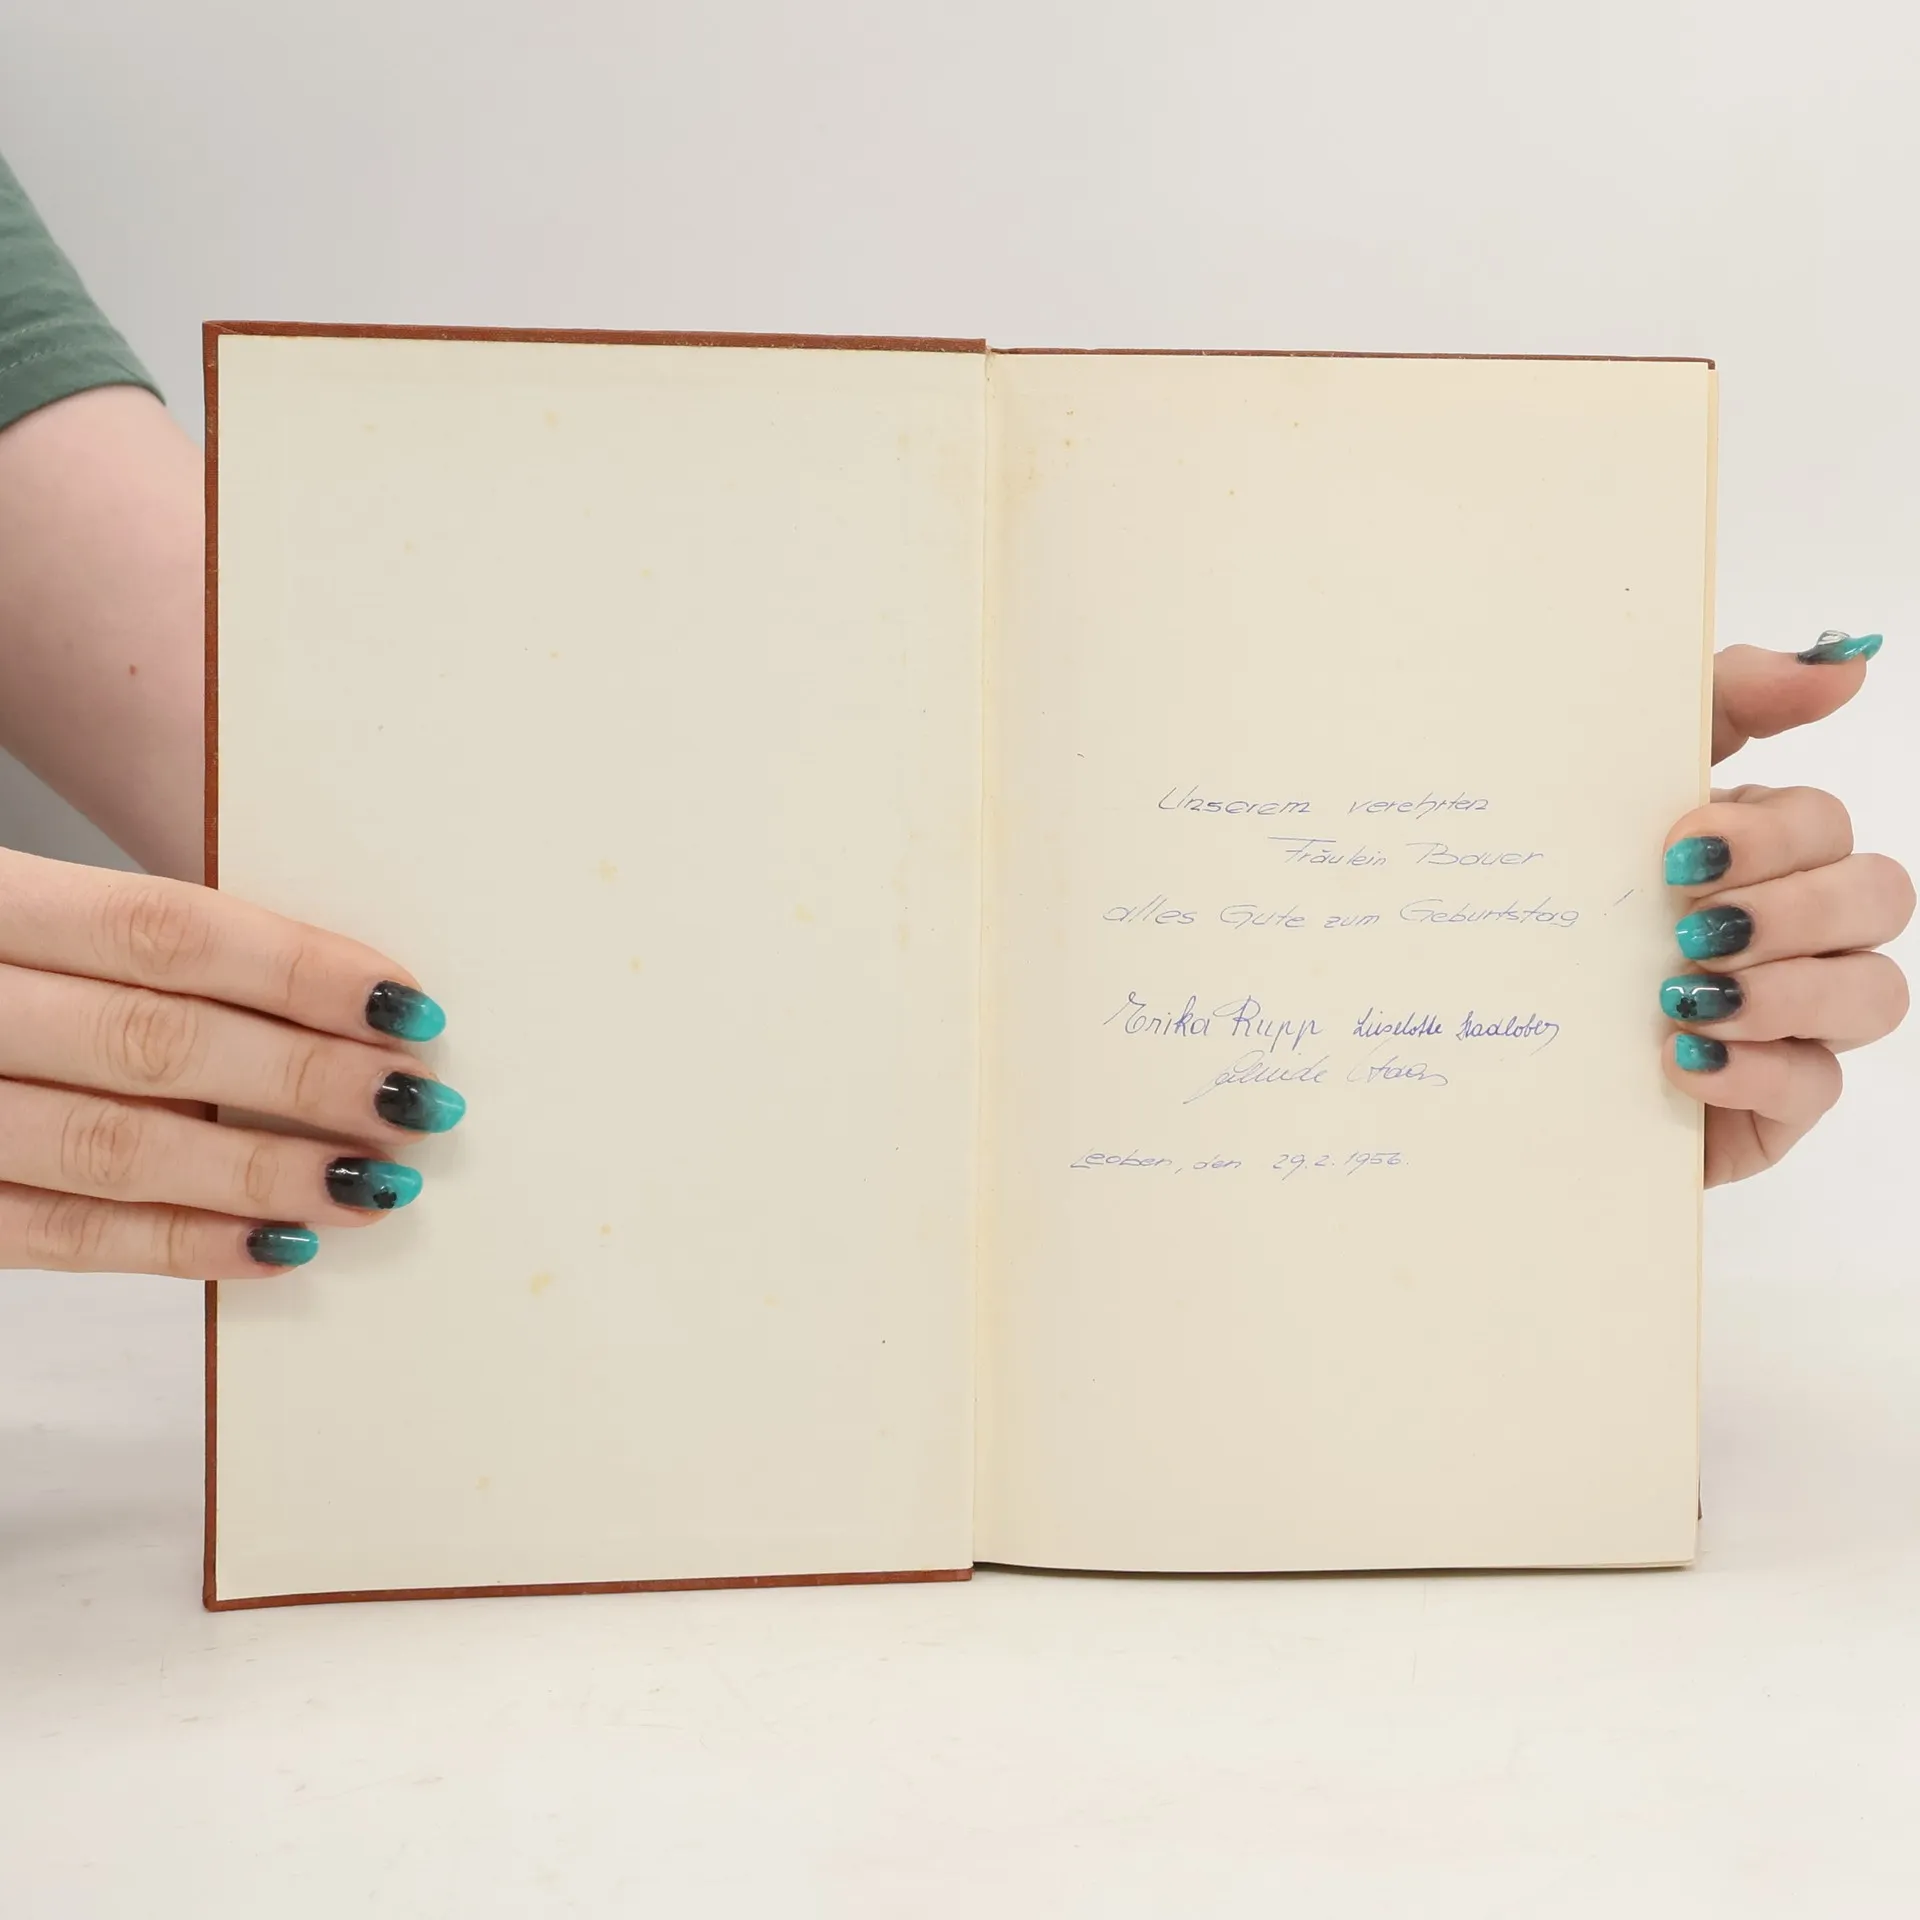 Unserem verehrten
Fräulein Bauer
alles Gute zum Geburtstag !
Erika Rupp Lieselotte Stadlober
Haas
Leoben, den 29.2.1956.